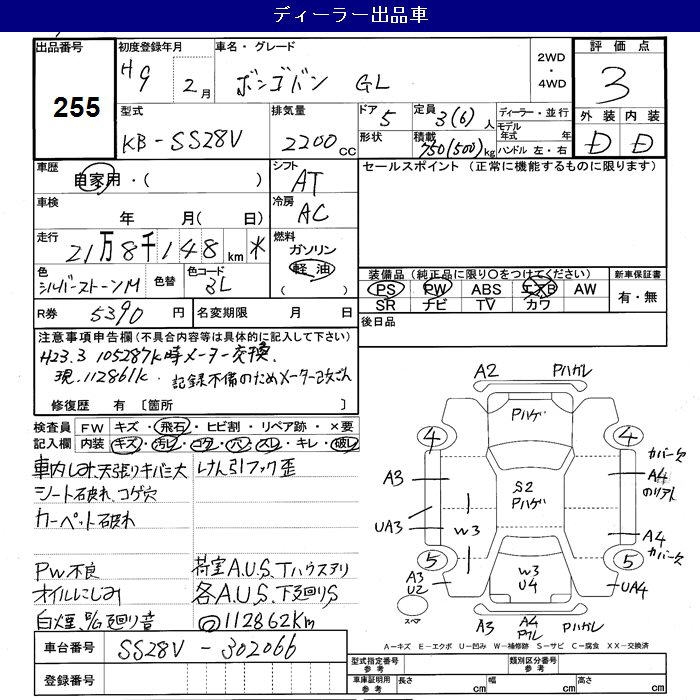 ディーラー出品車
出品番号
255
初度登録年月
H9 2月
車名・グレード
ボンゴバン GL
2WD
・
4WD
評価点
3
型式
KB-SS28V
排気量
2200cc
ドア
5
形状
定員
3(6)人
積載
750(500)kg
ディーラー・並行
モデル年式 年
ハンドル 左・右
外装
D
内装
D
車歴
自家用・( )
シフト
AT
セールスポイント (正常に機能するものに限ります)
車検
年 月( 日)
冷房
AC
走行
21万8千148km *
燃料
ガソリン
軽油
( )
色
シルバーストーンM
色替
色コード
3L
装備品(純正品に限り○をつけてください)
PS PW ABS エアB AW
SR ナビ TV カワ
新車保証書
有・無
R券 5390円
名変期限 月 日
後日品
注意事項申告欄(不具合内容等は具体的に記入して下さい)
H23.3 105287k時メーター交換.
現.112861k. 記録不備のためメーター改ざん
修復歴 有 〔箇所 〕
検査員記入欄
FW キズ・飛石・ヒビ割・リペア跡・×要
内装 キズ・汚レ・コゲ・穴・スレ・キレ・破レ
車内しみ.天張りキバミ大
けん引フック歪
シート破れ、コゲ穴
カーペット破れ
PW不良
荷室A.U.S.Tハウスヲリ
オイルにじみ
各A.U.S.下廻りS
白煙.%廻り音
回112862Km
A2 Pハガレ
Pハゲ
4 4
カバー欠
A3
A4のリアト
S2
Pハゲ
UA3
W3
A4
カバー欠
5 5
A3
U2
W3
U4
UA4
スペア
A3
A4
Pワレ
Pハガレ
A-キズ E-エクボ U-凹み W-補修跡 S-サビ C-腐食 XX-交換済
車台番号
SS28V-302066
型式指定番号
参考
類別区分番号
参考
登録番号
車庫証明用
参考
長さ cm
幅 cm
高さ cm